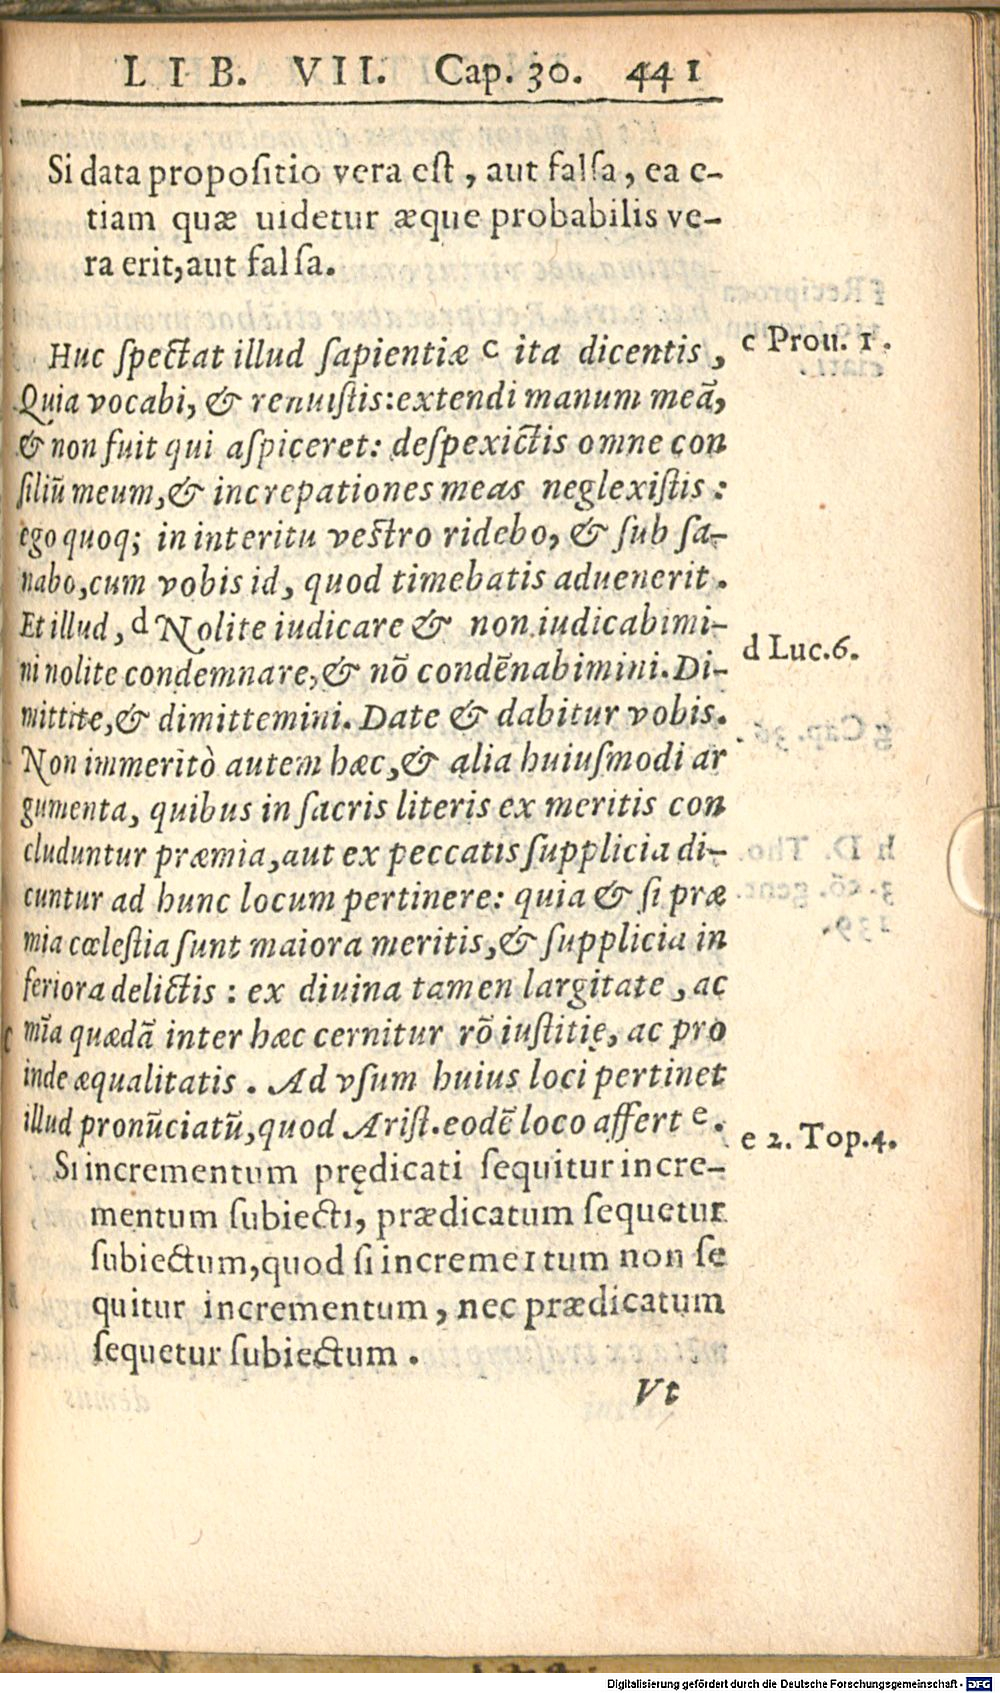 LIB. VII. Cap. 30. 441
Si data propositio vera est, aut falsa, ea e-
tiam quæ uidetur æque probabilis ve-
ra erit, aut falsa.
Huc spectat illud sapientiæ c ita dicentis,
c Prou. 1.
Quia vocabi, & renuistis: extendi manum meã,
& non fuit qui aspiceret: despexistis omne con
siliũ meum, & increpationes meas neglexistis:
ego quoq; in interitu vestro ridebo, & sub sa-
nabo, cum vobis id, quod timebatis aduenerit.
Et illud, d Nolite iudicare & non iudicabimi-
d Luc. 6.
ni nolite condemnare, & nõ condẽnabimini. Di-
mittite, & dimittemini. Date & dabitur vobis.
Non immeritò autem hæc, & alia huiusmodi ar
gumenta, quibus in sacris literis ex meritis con
cluduntur præmia, aut ex peccatis supplicia di-
cuntur ad hunc locum pertinere: quia & si præ
mia cœlestia sunt maiora meritis, & supplicia in
feriora delictis: ex diuina tamen largitate, ac
mĩa quædã inter hæc cernitur rõ iustitię, ac pro
inde æqualitatis. Ad vsum huius loci pertinet
illud pronũciatũ, quod Arist. eodẽ loco affert e.
e 2. Top. 4.
Si incrementum prędicati sequitur incre-
mentum subiecti, prædicatum sequetur
subiectum, quod si increme1tum non se
quitur incrementum, nec prædicatum
sequetur subiectum.
Vt
Digitalisierung gefördert durch die Deutsche Forschungsgemeinschaft - DFG